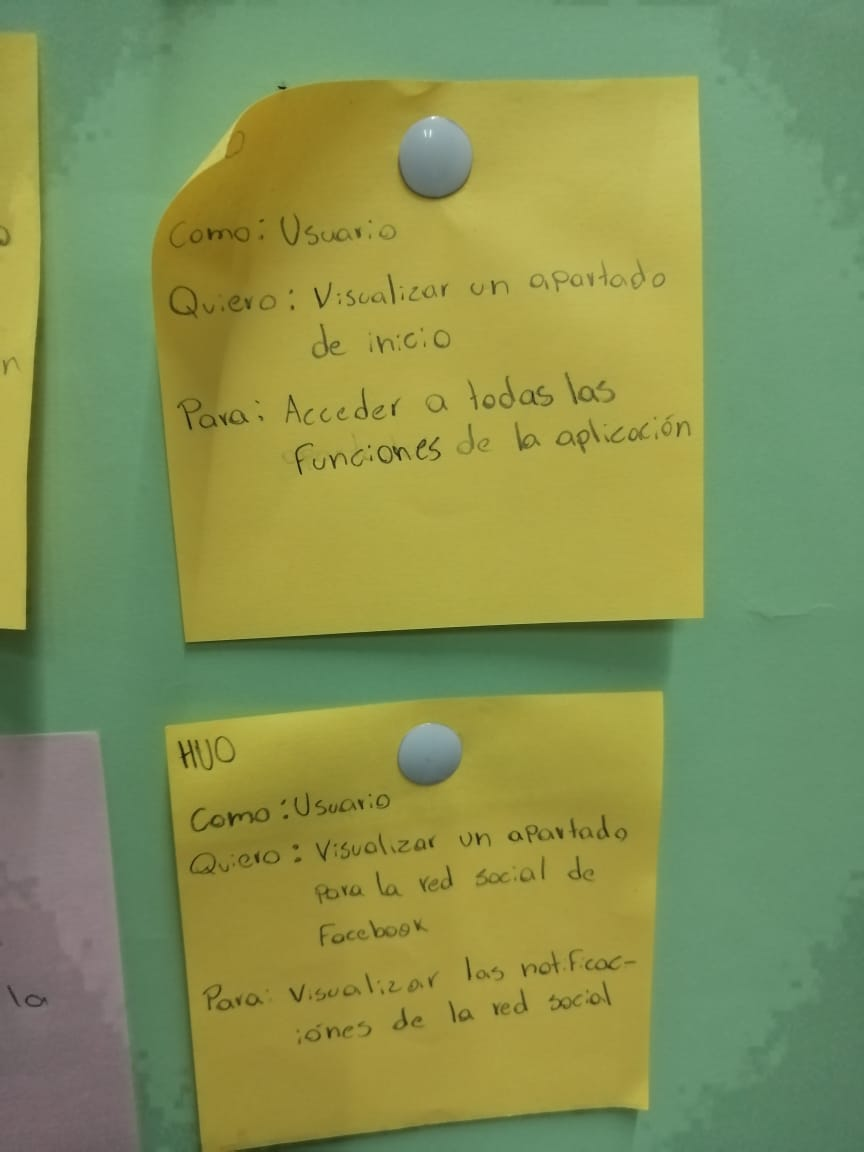 Como: Usuario
Quiero: Visualizar un apartado
de inicio
Para: Acceder a todas las
Funciones de la aplicación
HUO
Como: Usuario
Quiero: Visualizar un apartado
para la red social de
Facebook
Para: Visualizar las notificac-
iones de la red social
la